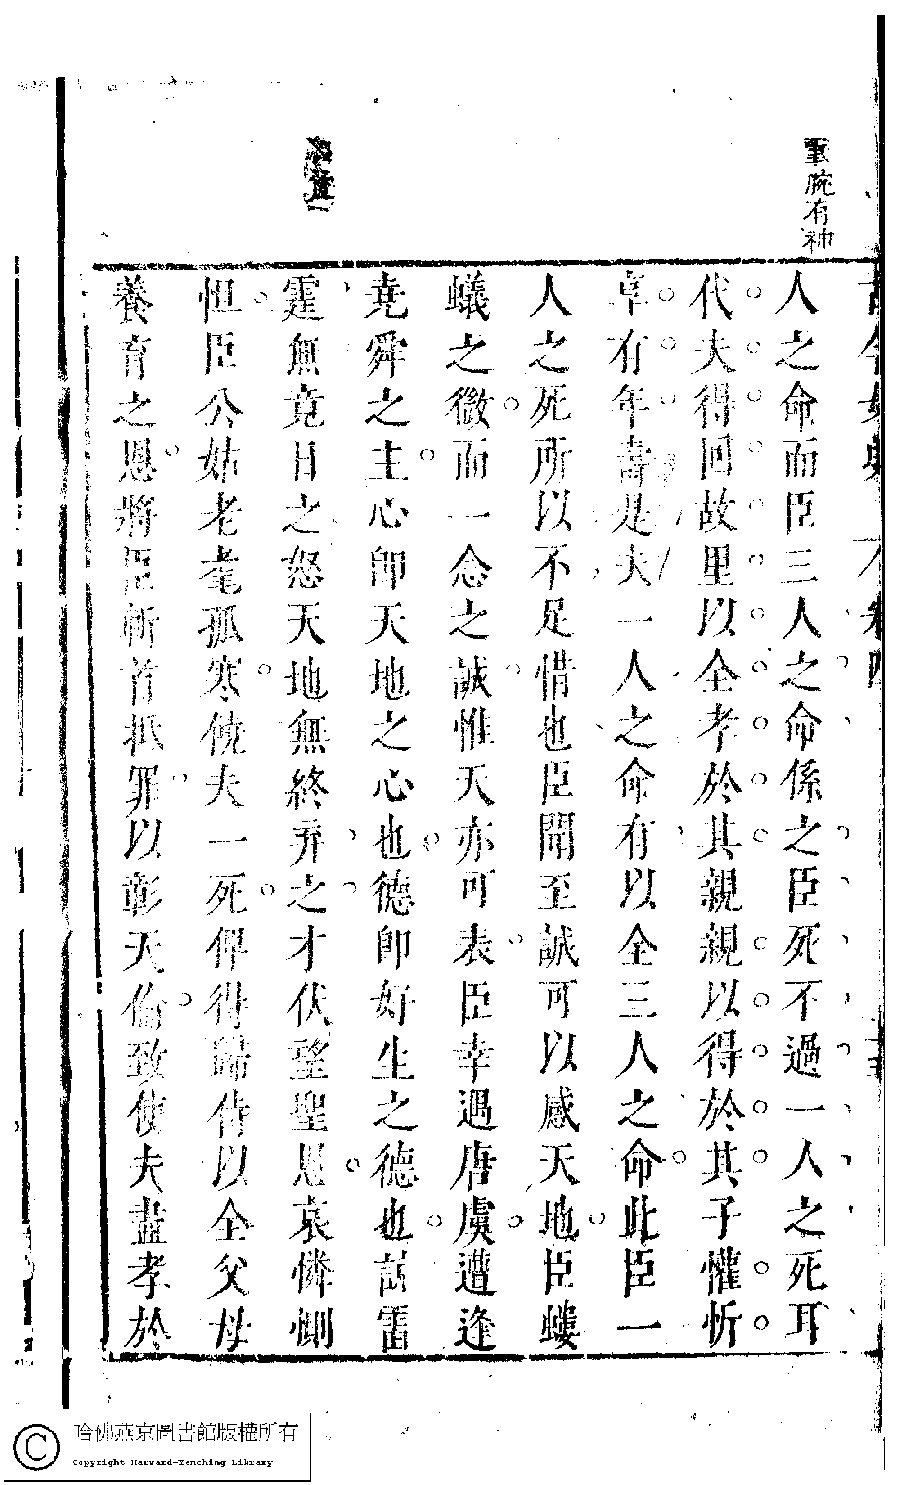 筆腕有神
人之命而臣三人之命係之臣死不過一人之死耳
代夫得回故里以全孝於其親親以得於其子懽忻
卓有年壽是夫一人之命有以全三人之命此臣一
人之死所以不足惜也臣聞至誠可以感天地臣螻
蟻之微而一念之誠惟天亦可表臣幸遇唐虞遭逢
堯舜之主心即天地之心也德即好生之德也話雷
霆無竟日之怒天地無終弃之才伏望聖恩哀憐惻
怛臣公姑老耄孤寒饒夫一死俾得歸侍以全父母
養育之恩將臣斬首抵罪以彰天倫致使夫盡孝於
哈佛燕京圖書館版權所有
Copyright Harvard-Yenching Library